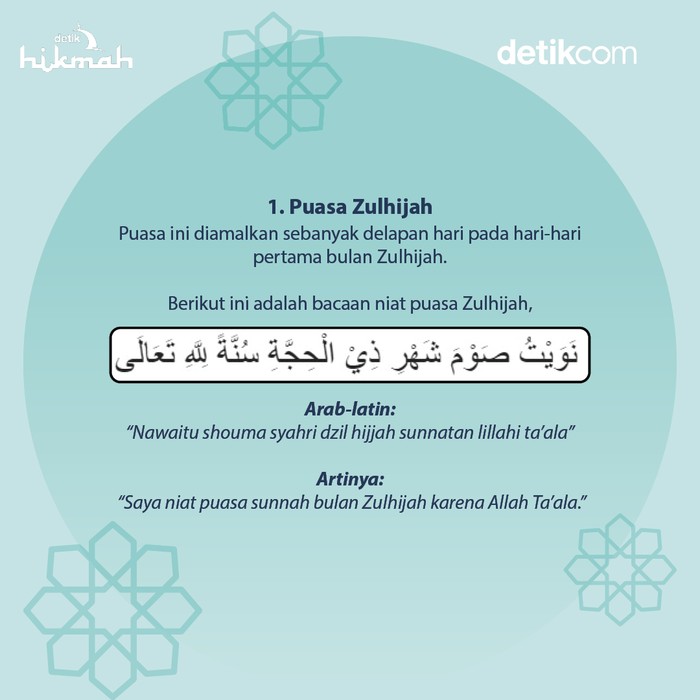 detik
hikmah
detikcom
1. Puasa Zulhijah
Puasa ini diamalkan sebanyak delapan hari pada hari-hari
pertama bulan Zulhijah.
Berikut ini adalah bacaan niat puasa Zulhijah,
نَوَيْتُ صَوْمَ شَهْرِ ذِيْ الْحِجَّةِ سُنَّةً لِلَّهِ تَعَالَى
Arab-latin:
“Nawaitu shouma syahri dzil hijjah sunnatan lillahi ta’ala”
Artinya:
“Saya niat puasa sunnah bulan Zulhijah karena Allah Ta’ala.”